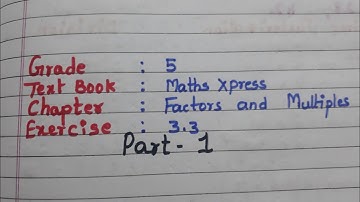 Grade : 5
Text Book : Maths Xpress
Chapter : Factors and Multiples
Exercise : 3.3
Part - 1